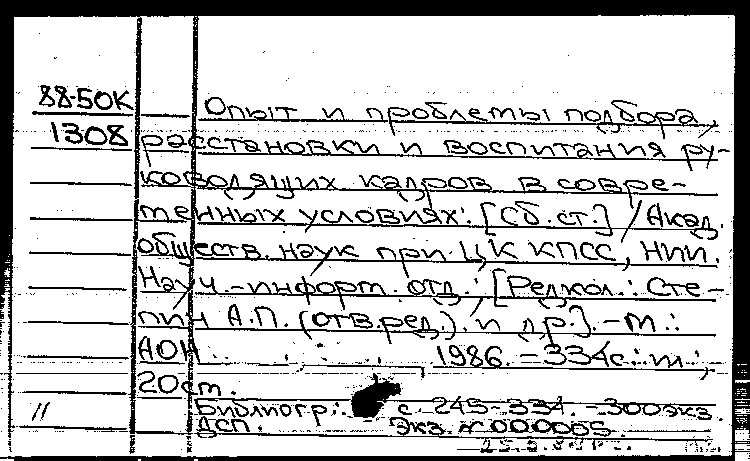 88-50К Опыт и проблемы подбора,
1308 расстановки и воспитания ру-
ководящих кадров в совре-
менных условиях: [Сб. ст.] / Акад.
обществ. наук при ЦК КПСС, НИИ.
Науч.-информ. отд.; [Редкол.: Сте-
пин А.П. (отв. ред.). и др.]. - М.:
АОН 1986. - 334с.: ил.;
20см.
Библиогр.: с. 245-334. - 300экз.
11 ДСП. Экз. № 000005.